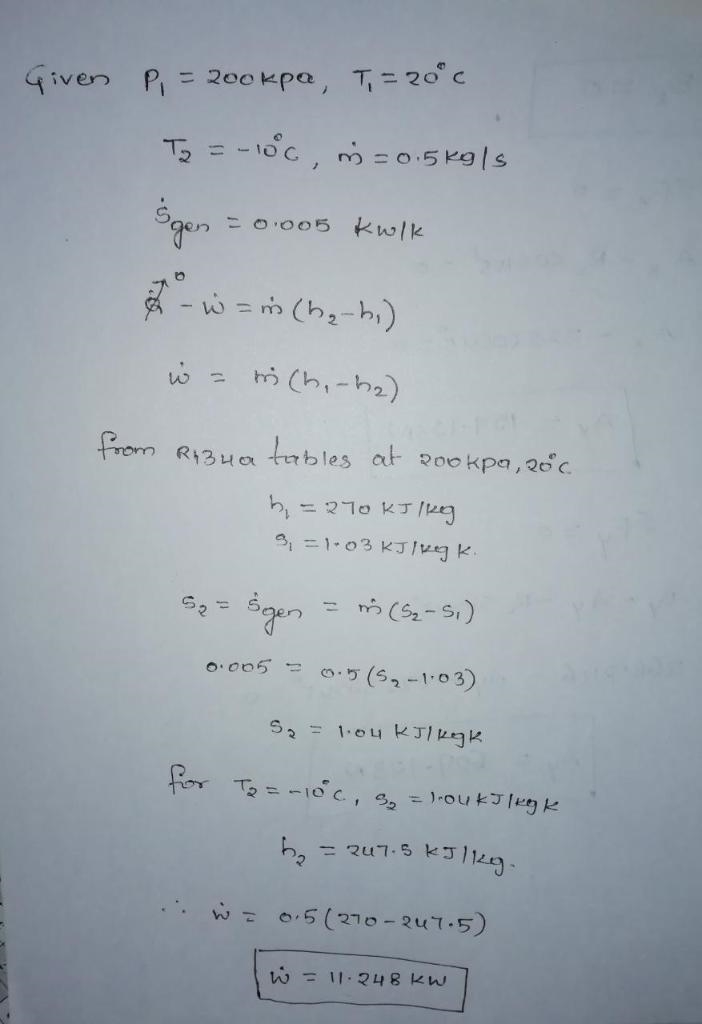 Given P₁ = 200kpa, T₁ = 20°C
T₂ = -10°C, ṁ = 0.5kg/s
Ṡgen = 0.005 kw/k
Q̇↗⁰ - ẇ = ṁ (h₂-h₁)
ẇ = ṁ (h₁-h₂)
from R134a tables at 200kpa, 20°C
h₁ = 270 KJ/kg
s₁ = 1.03 KJ/kg k.
S₂ = Ṡgen = ṁ (S₂-S₁)
0.005 = 0.5 (S₂-1.03)
S₂ = 1.04 KJ/kgk
for T₂ = -10°C, S₂ = 1.04KJ/kgk
h₂ = 247.5 KJ/kg.
∴ ẇ = 0.5 (270-247.5)
ẇ = 11.248 KW